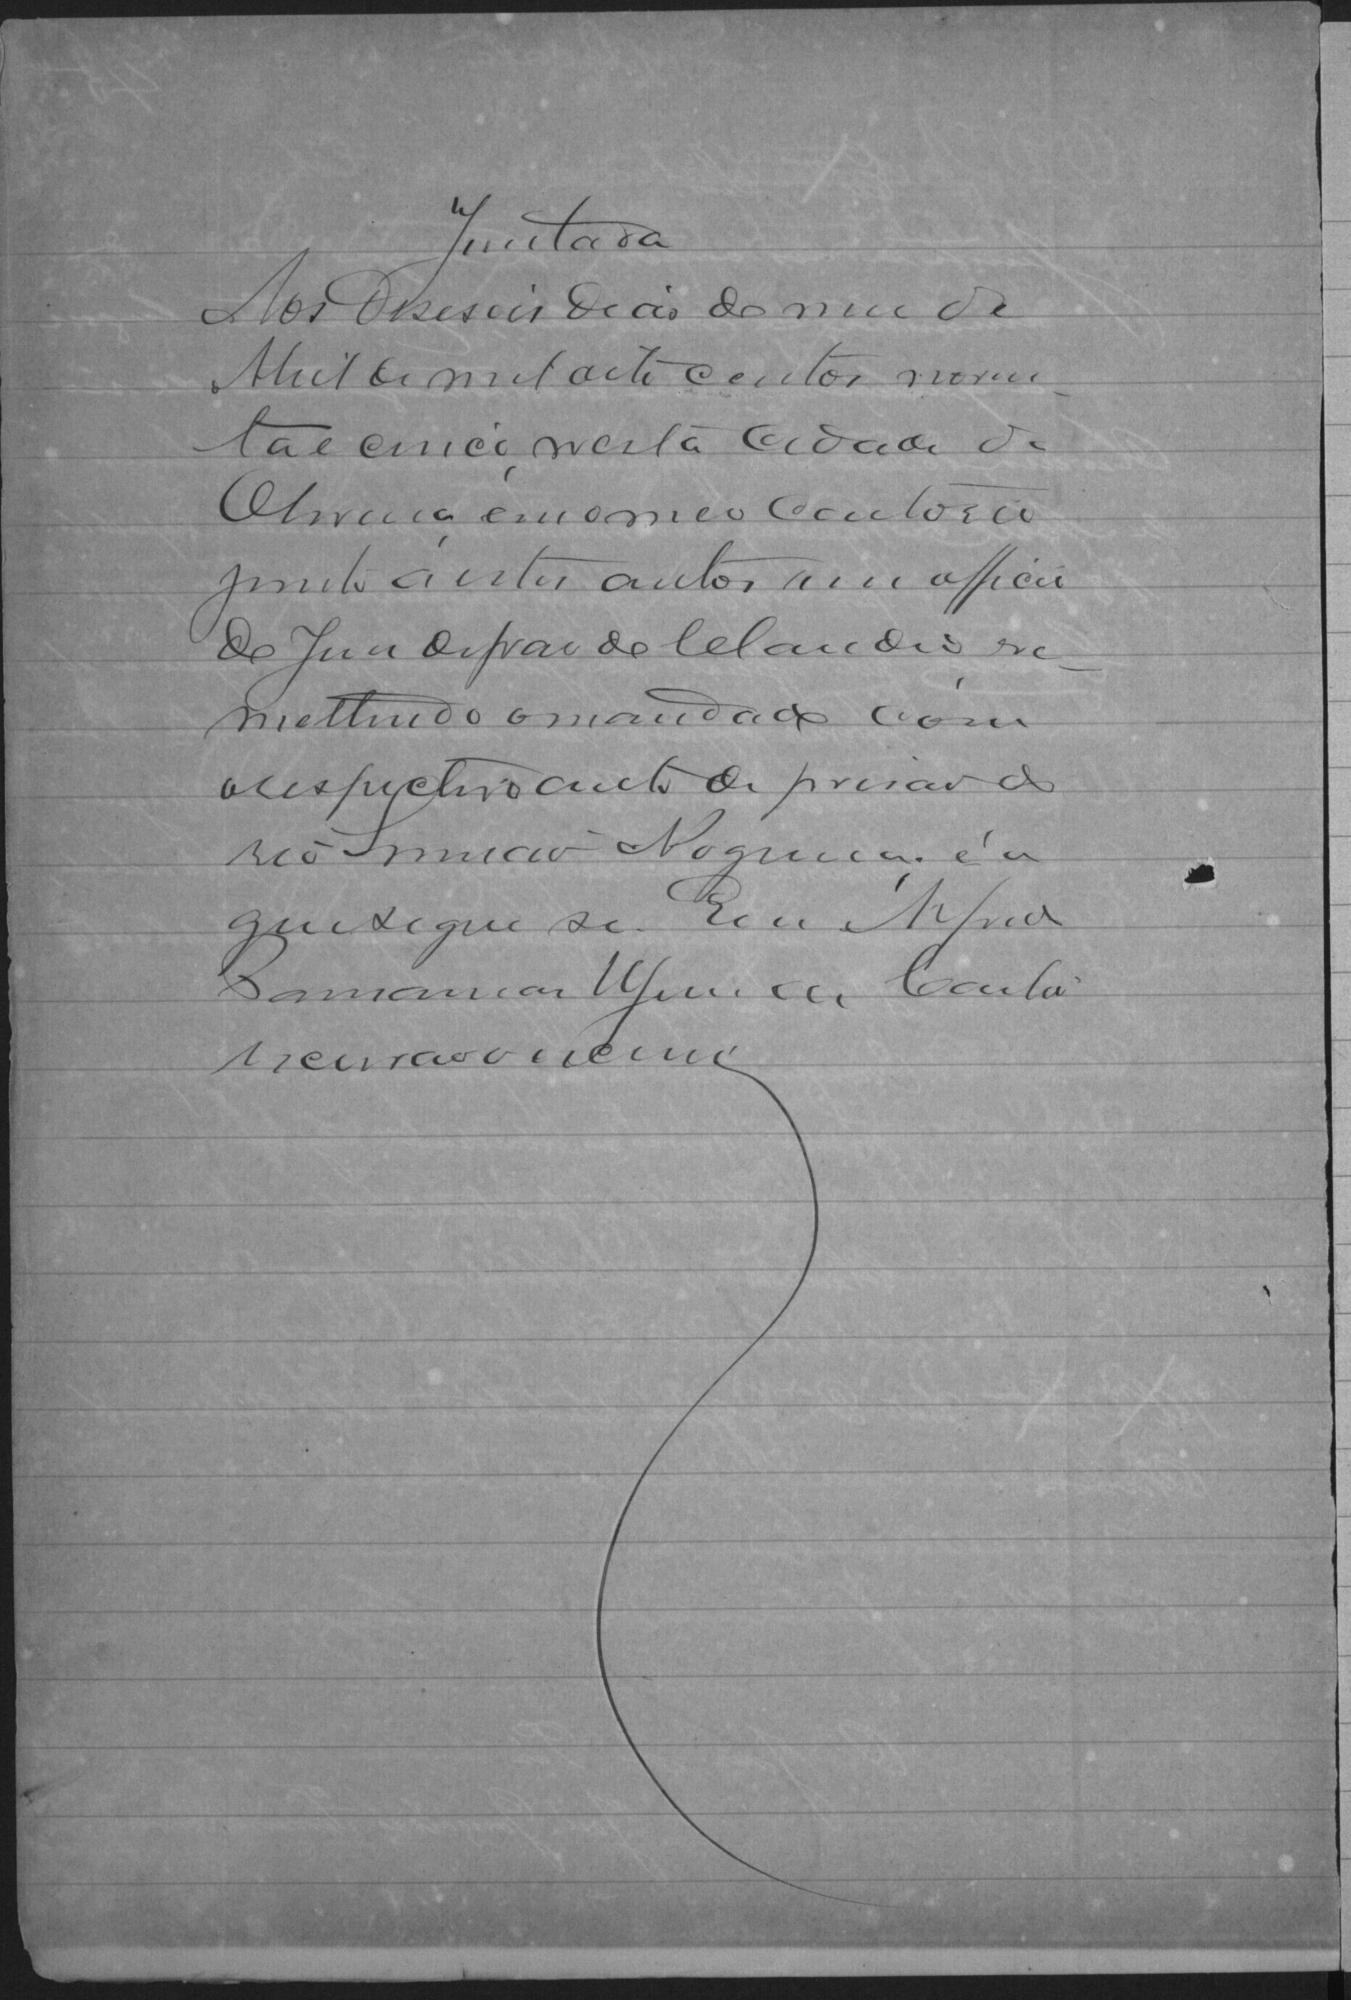 Juntada
Aos Deseseis dias do mez de
Abril de mil oito centos noven-
ta e cinco, nesta cidade de
Oliveira, em o meo Cartorio
junto á estes autos um officio
do Juiz de paz do Claudio re-
mettendo o mandado com
o respectivo auto de prisão do
reo Nogueira. é o
que segue se. Eu Alfredo